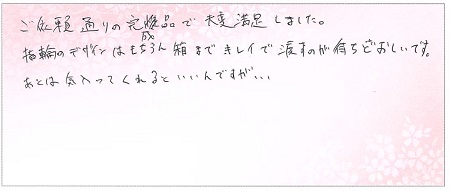 ご依頼通りの完成品で大変満足しました。
指輪のデザインはもちろん箱までキレイで渡すのが待ちどおしいです。
あとは気入ってくれるといいんですが、、、